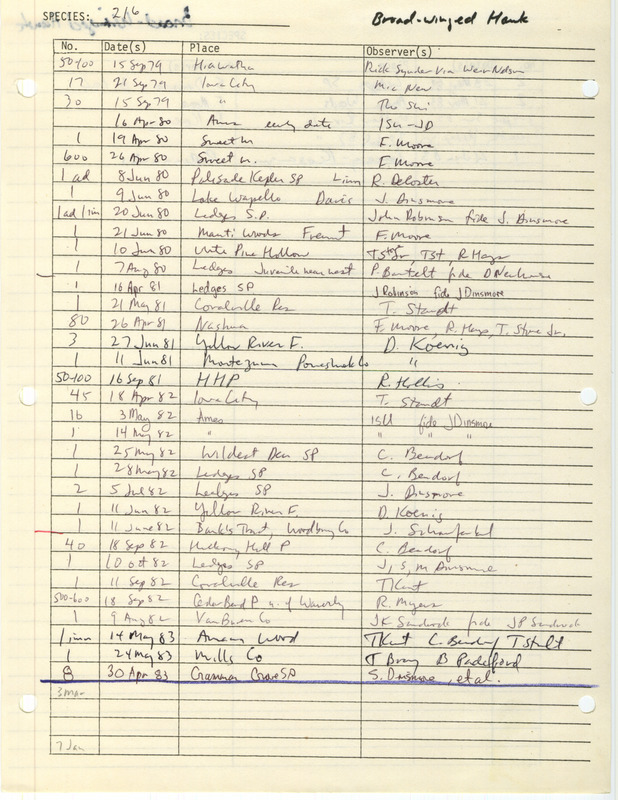 SPECIES: 216 Broad-winged Hawk
No. Date(s) Place Observer(s)
50-100 15 Sep 79 Hiawatha Rick Snyder via Wear Nelson
17 21 Sep 79 Iowa City
30 15 Sep 79 "
16 Apr 80 Ames early date ISU-JD
1 19 Apr 80 Sweet M. F. Moore
600 26 Apr 80 Sweet M. F Moore
1 ad 8 Jun 80 Palisade Kepler SP Linn R. DeCoster
1 9 Jun 80 Lake Wapello Davis J. Dinsmore
1ad/1im 20 Jun 80 Ledges S.P. John Robinson fide J. Dinsmore
1 21 Jun 80 Manti Woods Fremt F. Moore
1 10 Jun 80 White Pine Hollow TSt, R Hays
1 7 Aug 80 Ledges Juvenile near nest P. Bartelt fide D Newhouse
1 16 Apr 81 Ledges SP J Robinson fide J Dinsmore
1 21 May 81 Coralville Res T. Staudt
80 26 Apr 81 Nashua F. Moore, R. Hays, T. Stone Jr.
3 27 Jun 81 Yellow River F. D. Koenig
1 11 Jun 81 Montezuma Poweshiek Co "
50-100 16 Sep 81 HHP R. Hollis
45 18 Apr 82 Iowa City T. Staudt
16 3 May 82 Ames ISU fide J Dinsmore
1 14 May 82 " " " "
1 25 May 82 Wildcat Den SP C. Bendorf
1 28 May 82 Ledges SP C. Bendorf
2 5 Jul 82 Ledges SP J. Dinsmore
1 11 Jun 82 Yellow River F. D. Koenig
1 11 June 82 Woodbury Co J.
40 18 Sep 82 Hickory Hill P C. Bendorf
1 10 Oct 82 Ledges SP J, S, M Dinsmore
1 11 Sep 82 Coralville Res T Kent
500-600 18 Sep 82 Cedar Bend P n. of Waverly R. Myers
1 9 Aug 82 Van Buren Co JK Sandrock fide JP Sandrock
1 imm 14 May 83 Amana Wood T Kent C. Bendorf T Staudt
1 24 May 83 Mills Co T Bray B Padelford
8 30 Apr 83 Grammer Grove SP S. Dinsmore, et al.
3 Mar
7 Jan